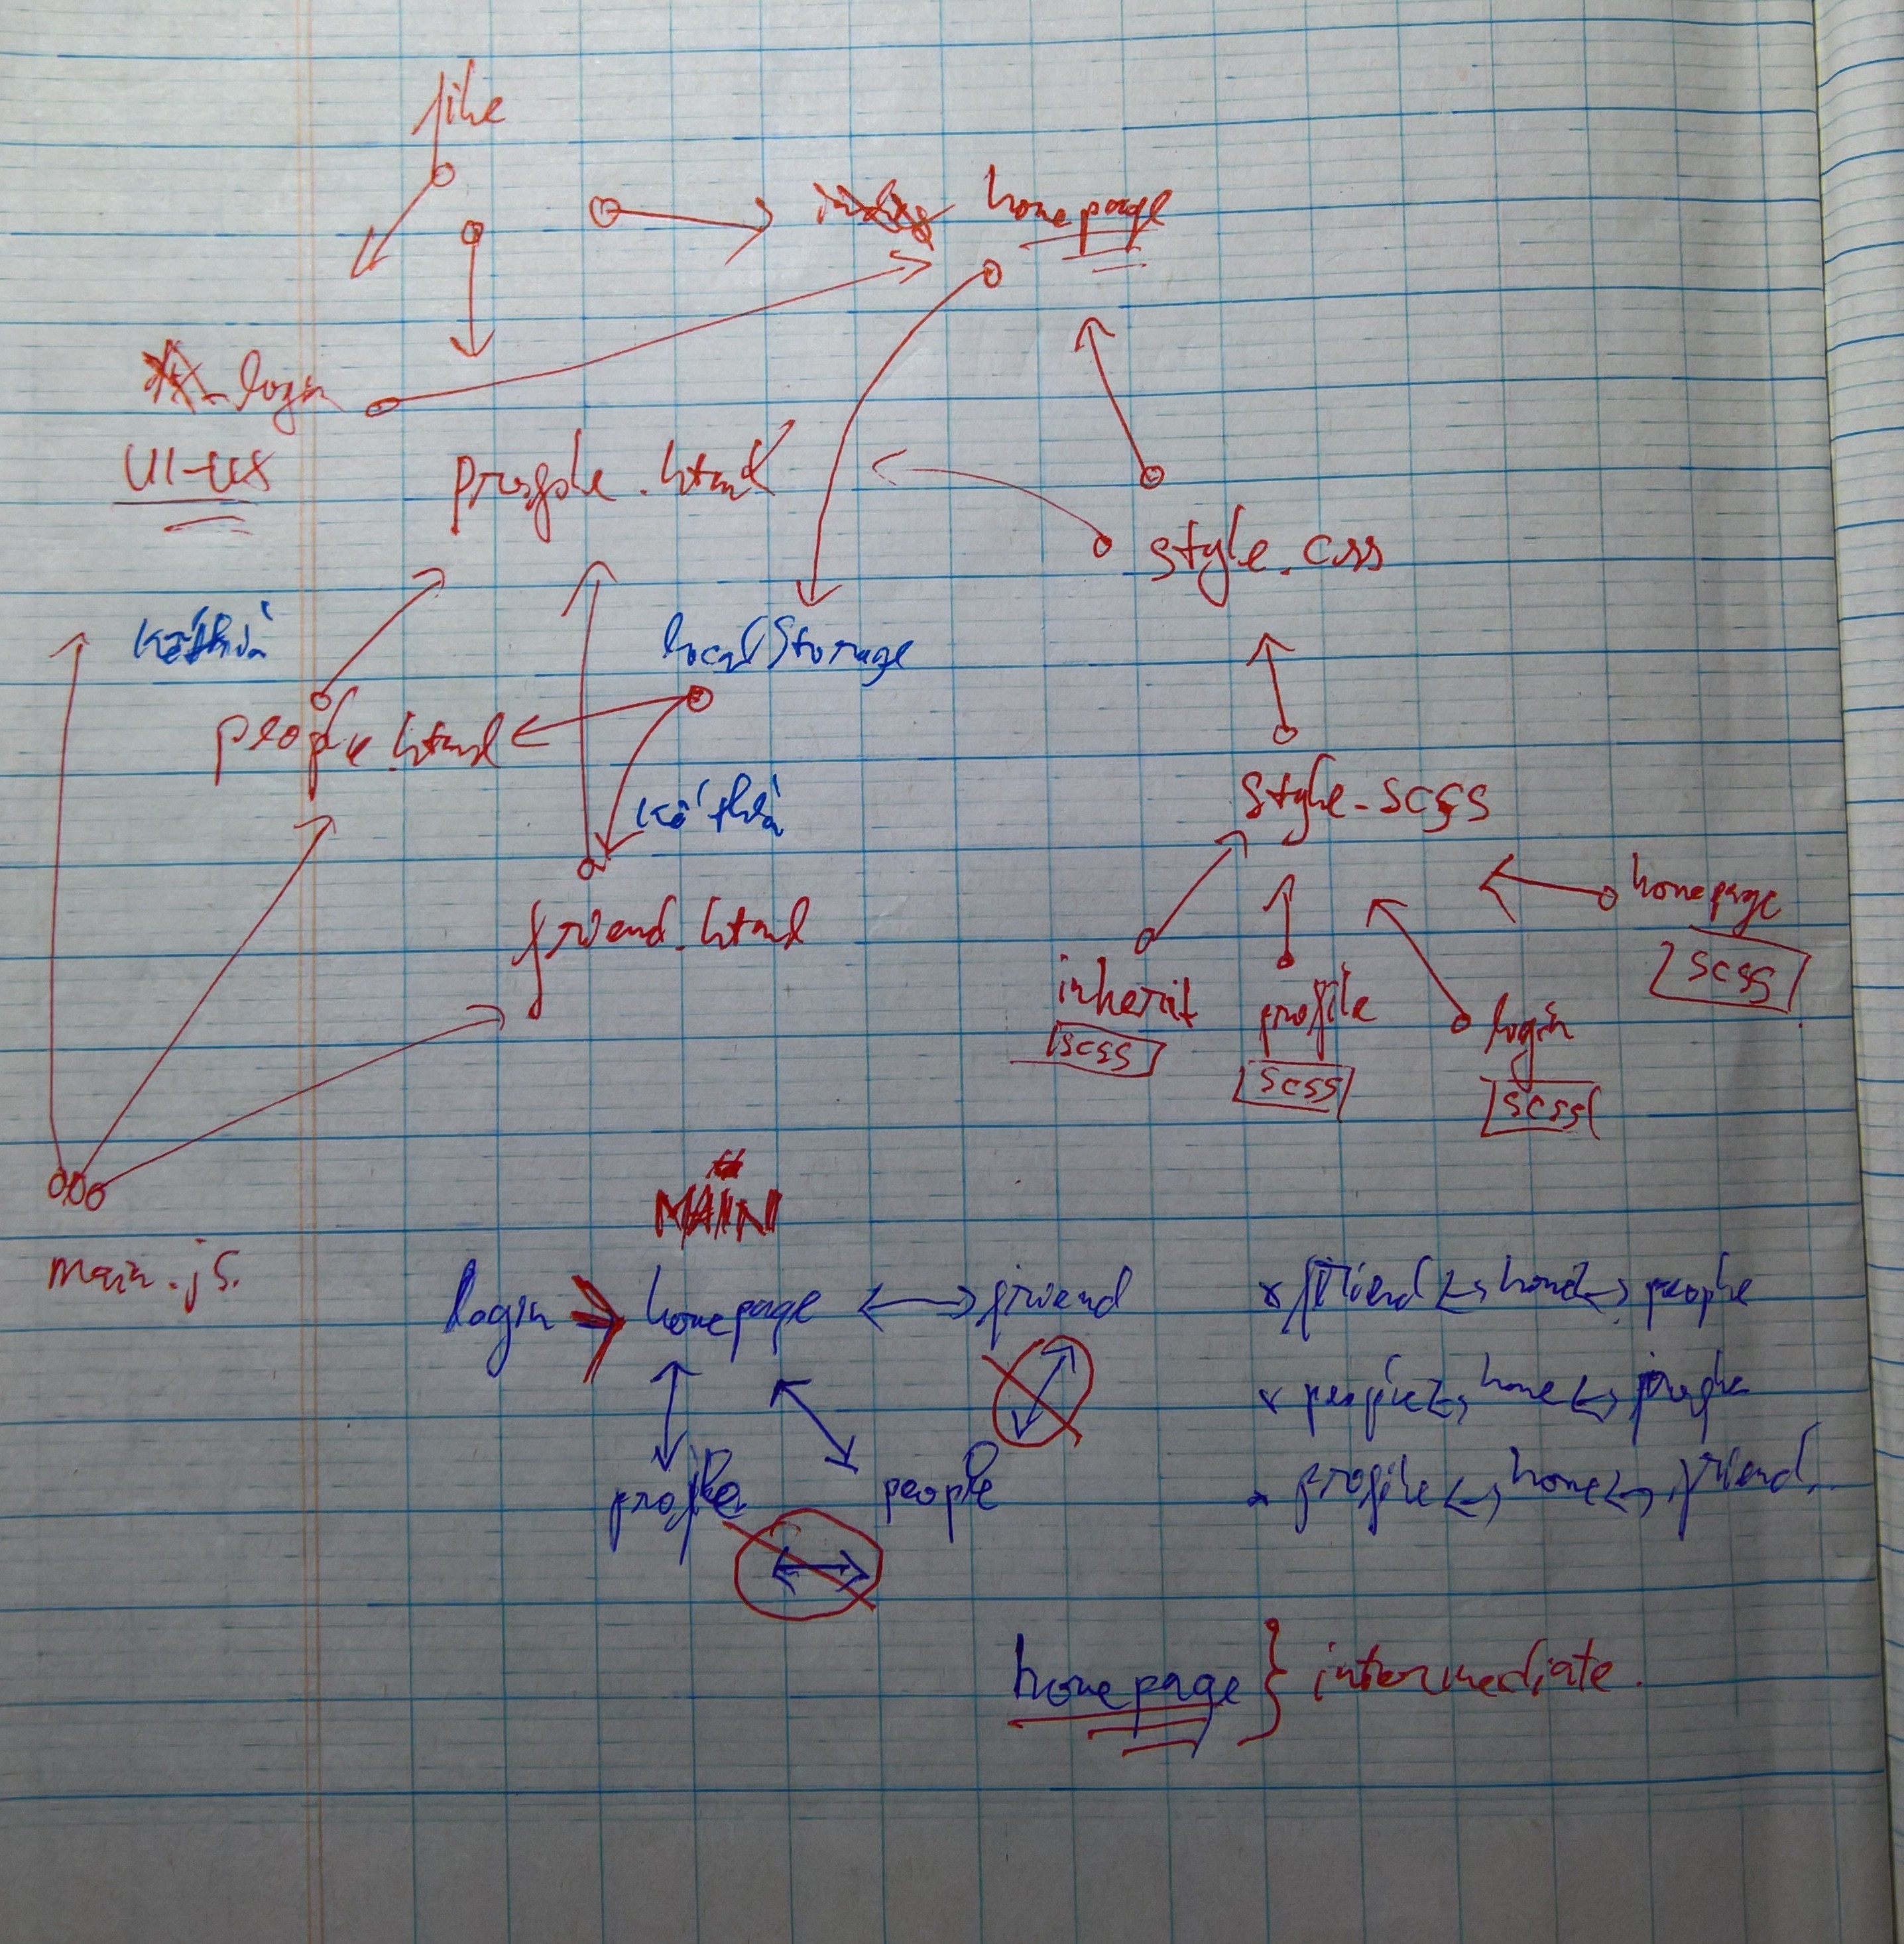 file
homepage
login
UI-UX
profile.html
style.css
kế thừa
localStorage
people.html
kế thừa
style.scss
friend.html
homepage
scss
inherit
scss
profile
scss
login
scss
main.js.
MAIN
login → homepage ↔ friend
profile
people
x friend ↔ home ↔ people
x people ↔ home ↔ profile
x profile ↔ home ↔ friend.
homepage } intermediate.